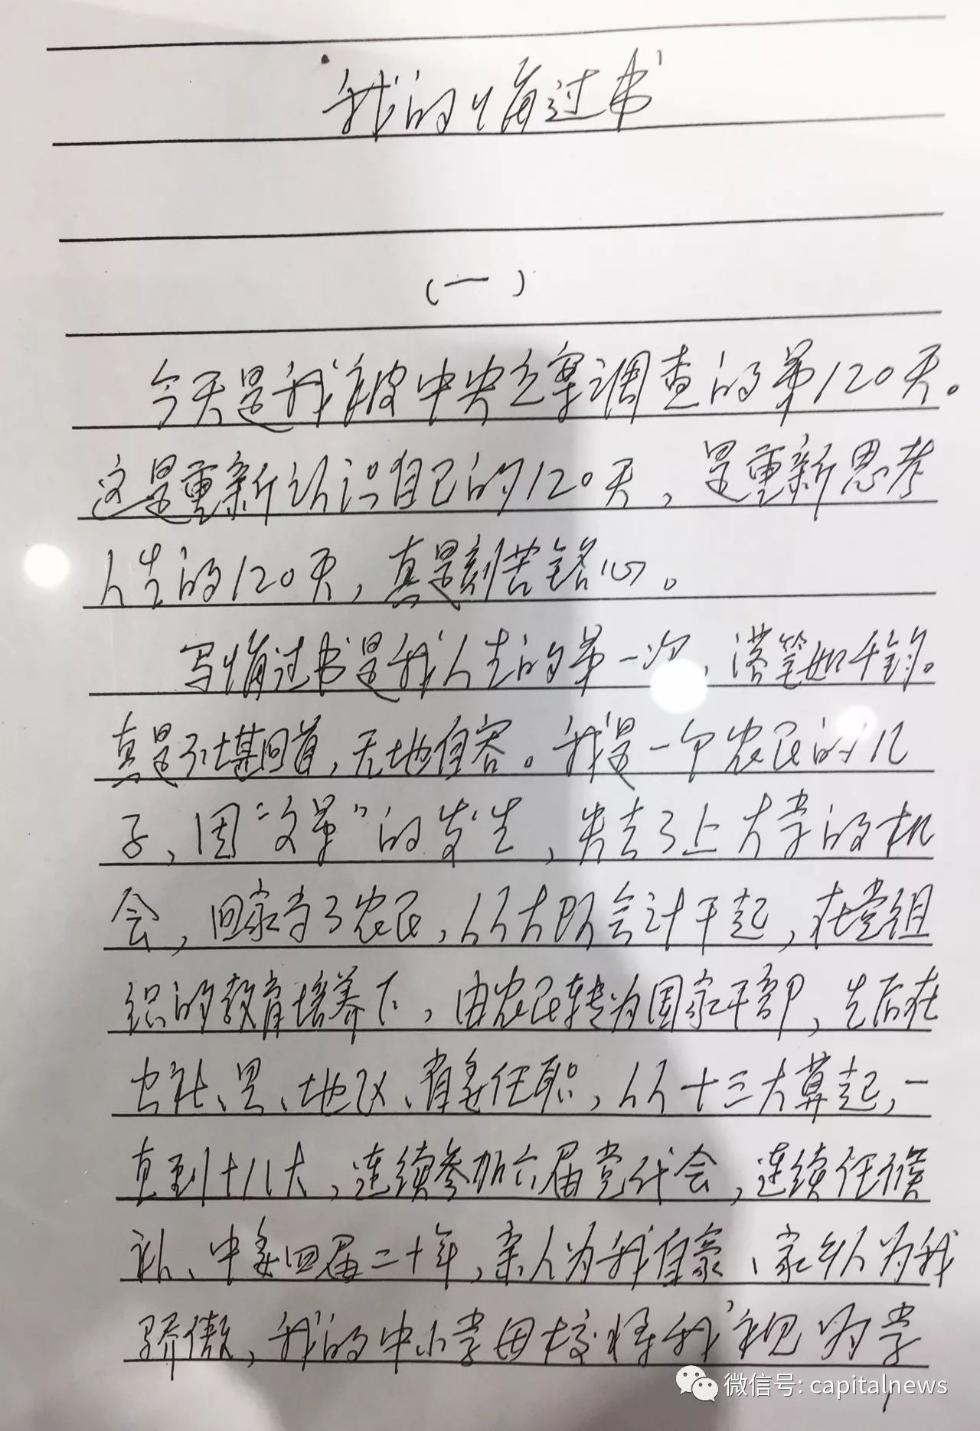 我的悔过书
（一）
今天是我被中央立案调查的第120天。
这是重新认识自己的120天，是重新思考
人生的120天，真是刻苦铭心。
写悔过书是我人生的第一次，落笔如千钧。
真是不堪回首，无地自容。我是一个农民的儿
子，因“文革”的发生，失去了上大学的机
会，回家当了农民，从大队会计干起，在党组
织的教育培养下，由农民转为国家干部，先后在
公社、县、地区、省委任职，从十三大算起，一
直到十八大，连续参加六届党代会，连续任候
补、中委四届二十年，亲人为我自豪、家乡人为我
骄傲，我的中小学母校将我视为学
微信号: capitalnews
1